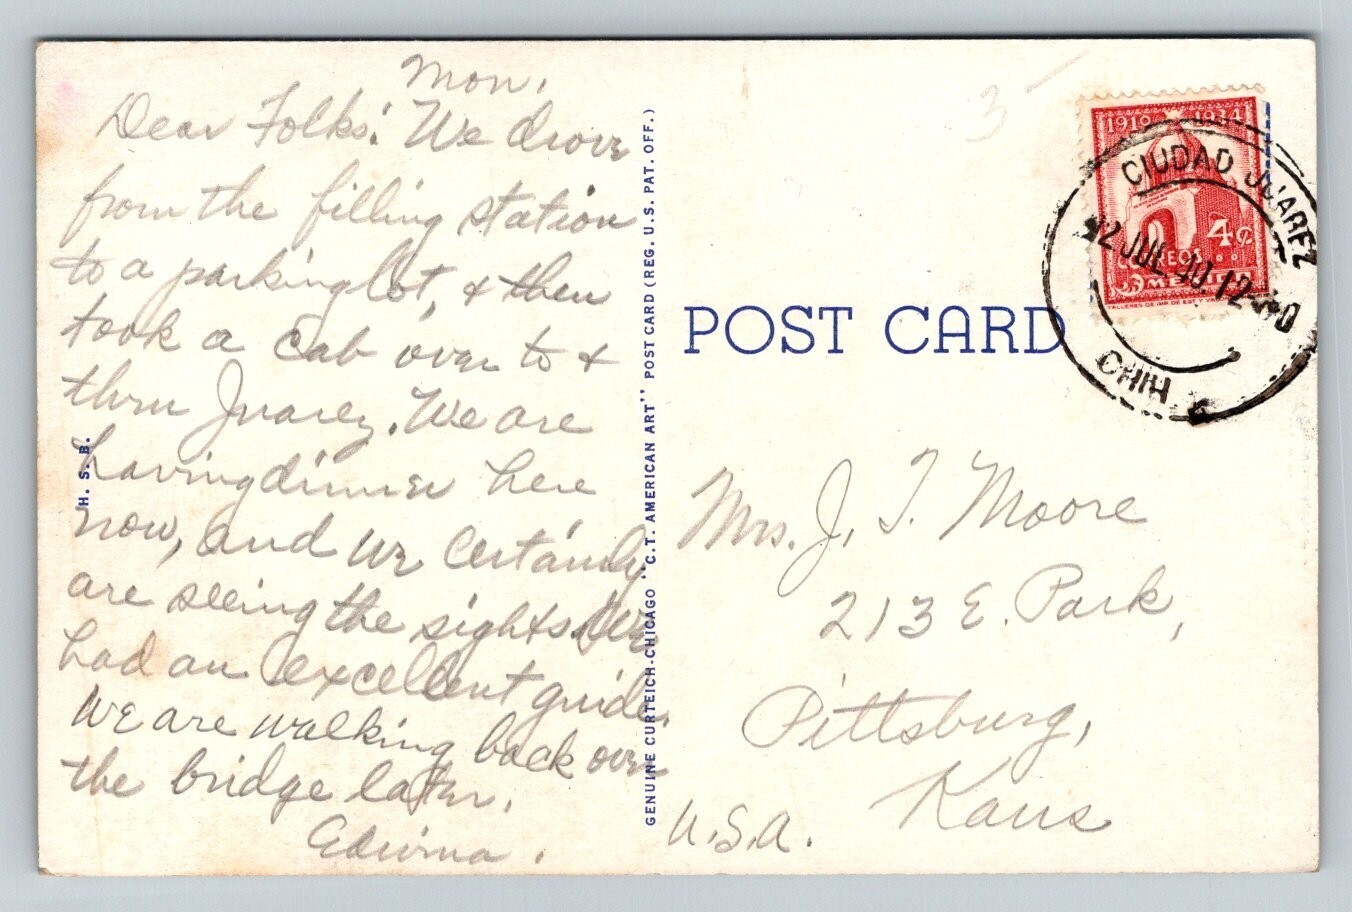 Mon.
Dear Folks: We drove
from the filling station
to a parking lot, & then
took a cab over to &
thru Juarez. We are
having dinner here
now, and we certainly
are seeing the sights. We
had an excellent guide.
We are walking back over
the bridge later.
Edwina.
H. S. B.
GENUINE CURTEICH-CHICAGO "C.T. AMERICAN ART" POST CARD (REG. U.S. PAT. OFF.)
POST CARD
3
1910 1934
4¢
CORREOS
MEXICO
TALLERES DE IMP. DE EST. Y VAL
CIUDAD JUAREZ
12 JUL 40 12
CHIH
Mrs. J. T. Moore
213 E. Park,
Pittsburg,
Kans
U.S.A.